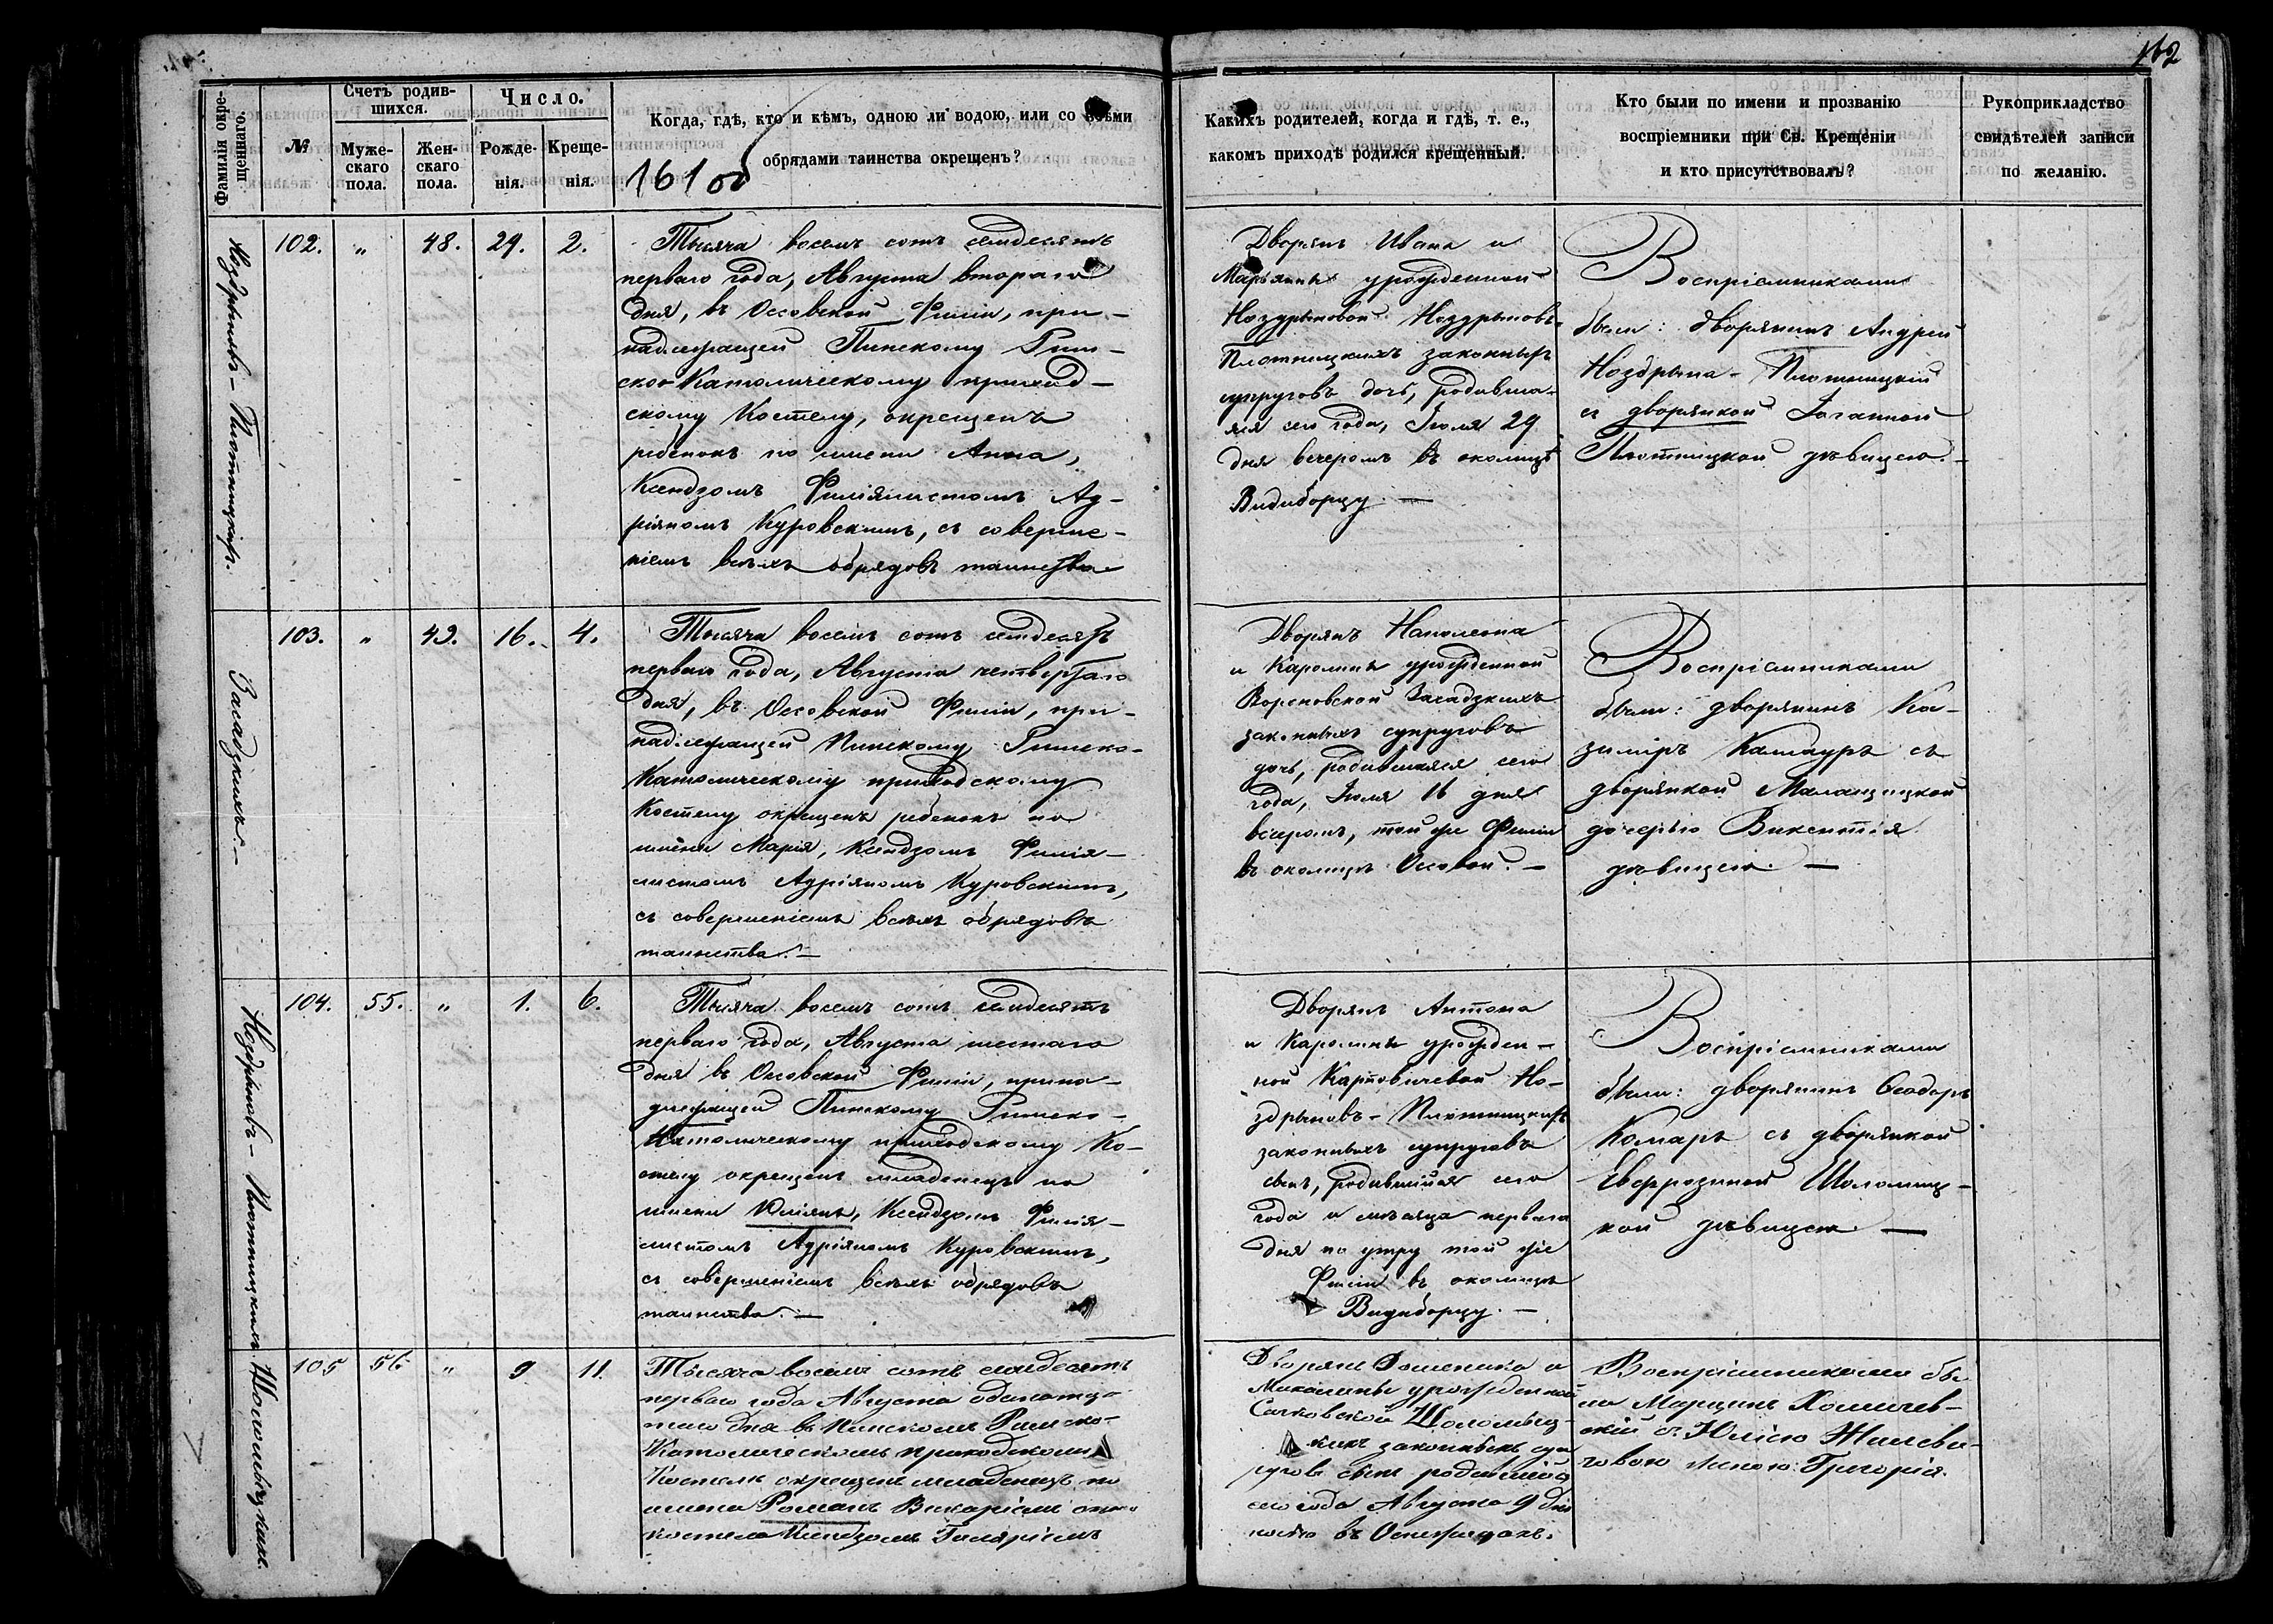 162
Фамилія окре-
щеннаго.
№
Счетъ родив-
шихся.
Муже-
скаго
пола.
Жен-
скаго
пола.
Число.
Рожде-
нія.
Креще-
нія.
Когда, гдѣ, кто и кѣмъ, одною ли водою, или со всѣми
обрядами таинства окрещенъ?
161 об
Какихъ родителей, когда и гдѣ, т. е.,
какомъ приходѣ родился крещенный.
Кто были по имени и прозванію
воспріемники при Св. Крещеніи
и кто присутствовалъ?
Рукоприкладство
свидѣтелей записи
по желанію.
Ноздрыновъ-Плотницкихъ.
102.
„
48.
29.
2.
Тысяча восемь сотъ семдесятъ
перваго года, Августа втораго
дня, въ Оссовской Филіи, при-
надлежащей Пинскому Рим-
ско-Католическому приход-
скому Костелу, окрещенъ
ребенокъ по имени Анна,
Ксендзомъ Филіялистомъ Ад-
ріяномъ Куровскимъ, съ соверше-
ніемъ всѣхъ обрядовъ таинства
Дворянъ Ивана и
Марьянны урожденной
Ноздрыновой Ноздрыновъ-
Плотницкихъ законныхъ
супруговъ дочь, родивша-
яся сего года, Іюля 29
дня вечеромъ въ околицѣ
Видиборцу. —
Воспріемниками
были: дворянинъ Андрей
Ноздрына-Плотницкій
съ дворянкой Іоганной
Плотницкой дѣвицею. —
Засадзкихъ. —
103.
„
49.
16.
4.
Тысяча восемь сотъ семдесятъ
перваго года, Августа четвертаго
дня, въ Оссовской Филіи, при-
надлежащей Пинскому Римско-
Католическому приходскому
Костелу окрещенъ ребенокъ по
имени Марія, Ксендзомъ Филія-
листомъ Адріяномъ Куровскимъ,
съ совершеніемъ всѣхъ обрядовъ
таинства. —
Дворянъ Наполеона
и Каролины урожденной
Вороновской Засадзкихъ
законныхъ супруговъ
дочь, родившаяся сего
года, Іюля 16 дня
вечеромъ, той же Филіи
въ околицѣ Оссовой. —
Воспріемниками
были: дворянинъ Ка-
зиміръ съ
дворянкой
дочерью Викентія
дѣвицею. —
Ноздрыновъ-Плотницкихъ.
104.
55.
„
1.
6.
Тысяча восемь сотъ семдесятъ
перваго года, Августа шестаго
дня въ Оссовской Филіи, прина-
длежащей Пинскому Римско-
Католическому приходскому Ко-
стелу окрещенъ младенецъ по
имени Юліянъ, Ксендзомъ Филія-
листомъ Адріяномъ Куровскимъ,
съ совершеніемъ всѣхъ обрядовъ
таинства. —
Дворянъ Антона
и Каролины урожден-
ной Карповичевой Но-
здрыновъ-Плотницкихъ
законныхъ супруговъ
сынъ, родившійся сего
года и мѣсяца перваго
дня по утру той же
Филіи въ околицѣ
Видиборцу. —
Воспріемниками
были: дворянинъ Ѳеодоръ
Комаръ съ дворянкой
Евфрозиной Шоломиц-
кой дѣвицею. —
Шоломицкихъ.
105
56
„
9
11.
Тысяча восемь сотъ семдесятъ
перваго года Августа одинатц-
таго дня въ Пинскомъ Римско-
Католическомъ приходскомъ
Костелѣ окрещенъ младенецъ по
имени Романъ Викаріемъ
костела Ксендзомъ Гиляріемъ
Дворянъ Доменика и
урожденной
Сачковской Шоломиц-
кихъ законныхъ суп
руговъ сынъ родившійся
сего года Августа 9 дня
въ
Воспріемниками бы
ли Марцинъ
скій съ Юліею
говою женою Григорія.